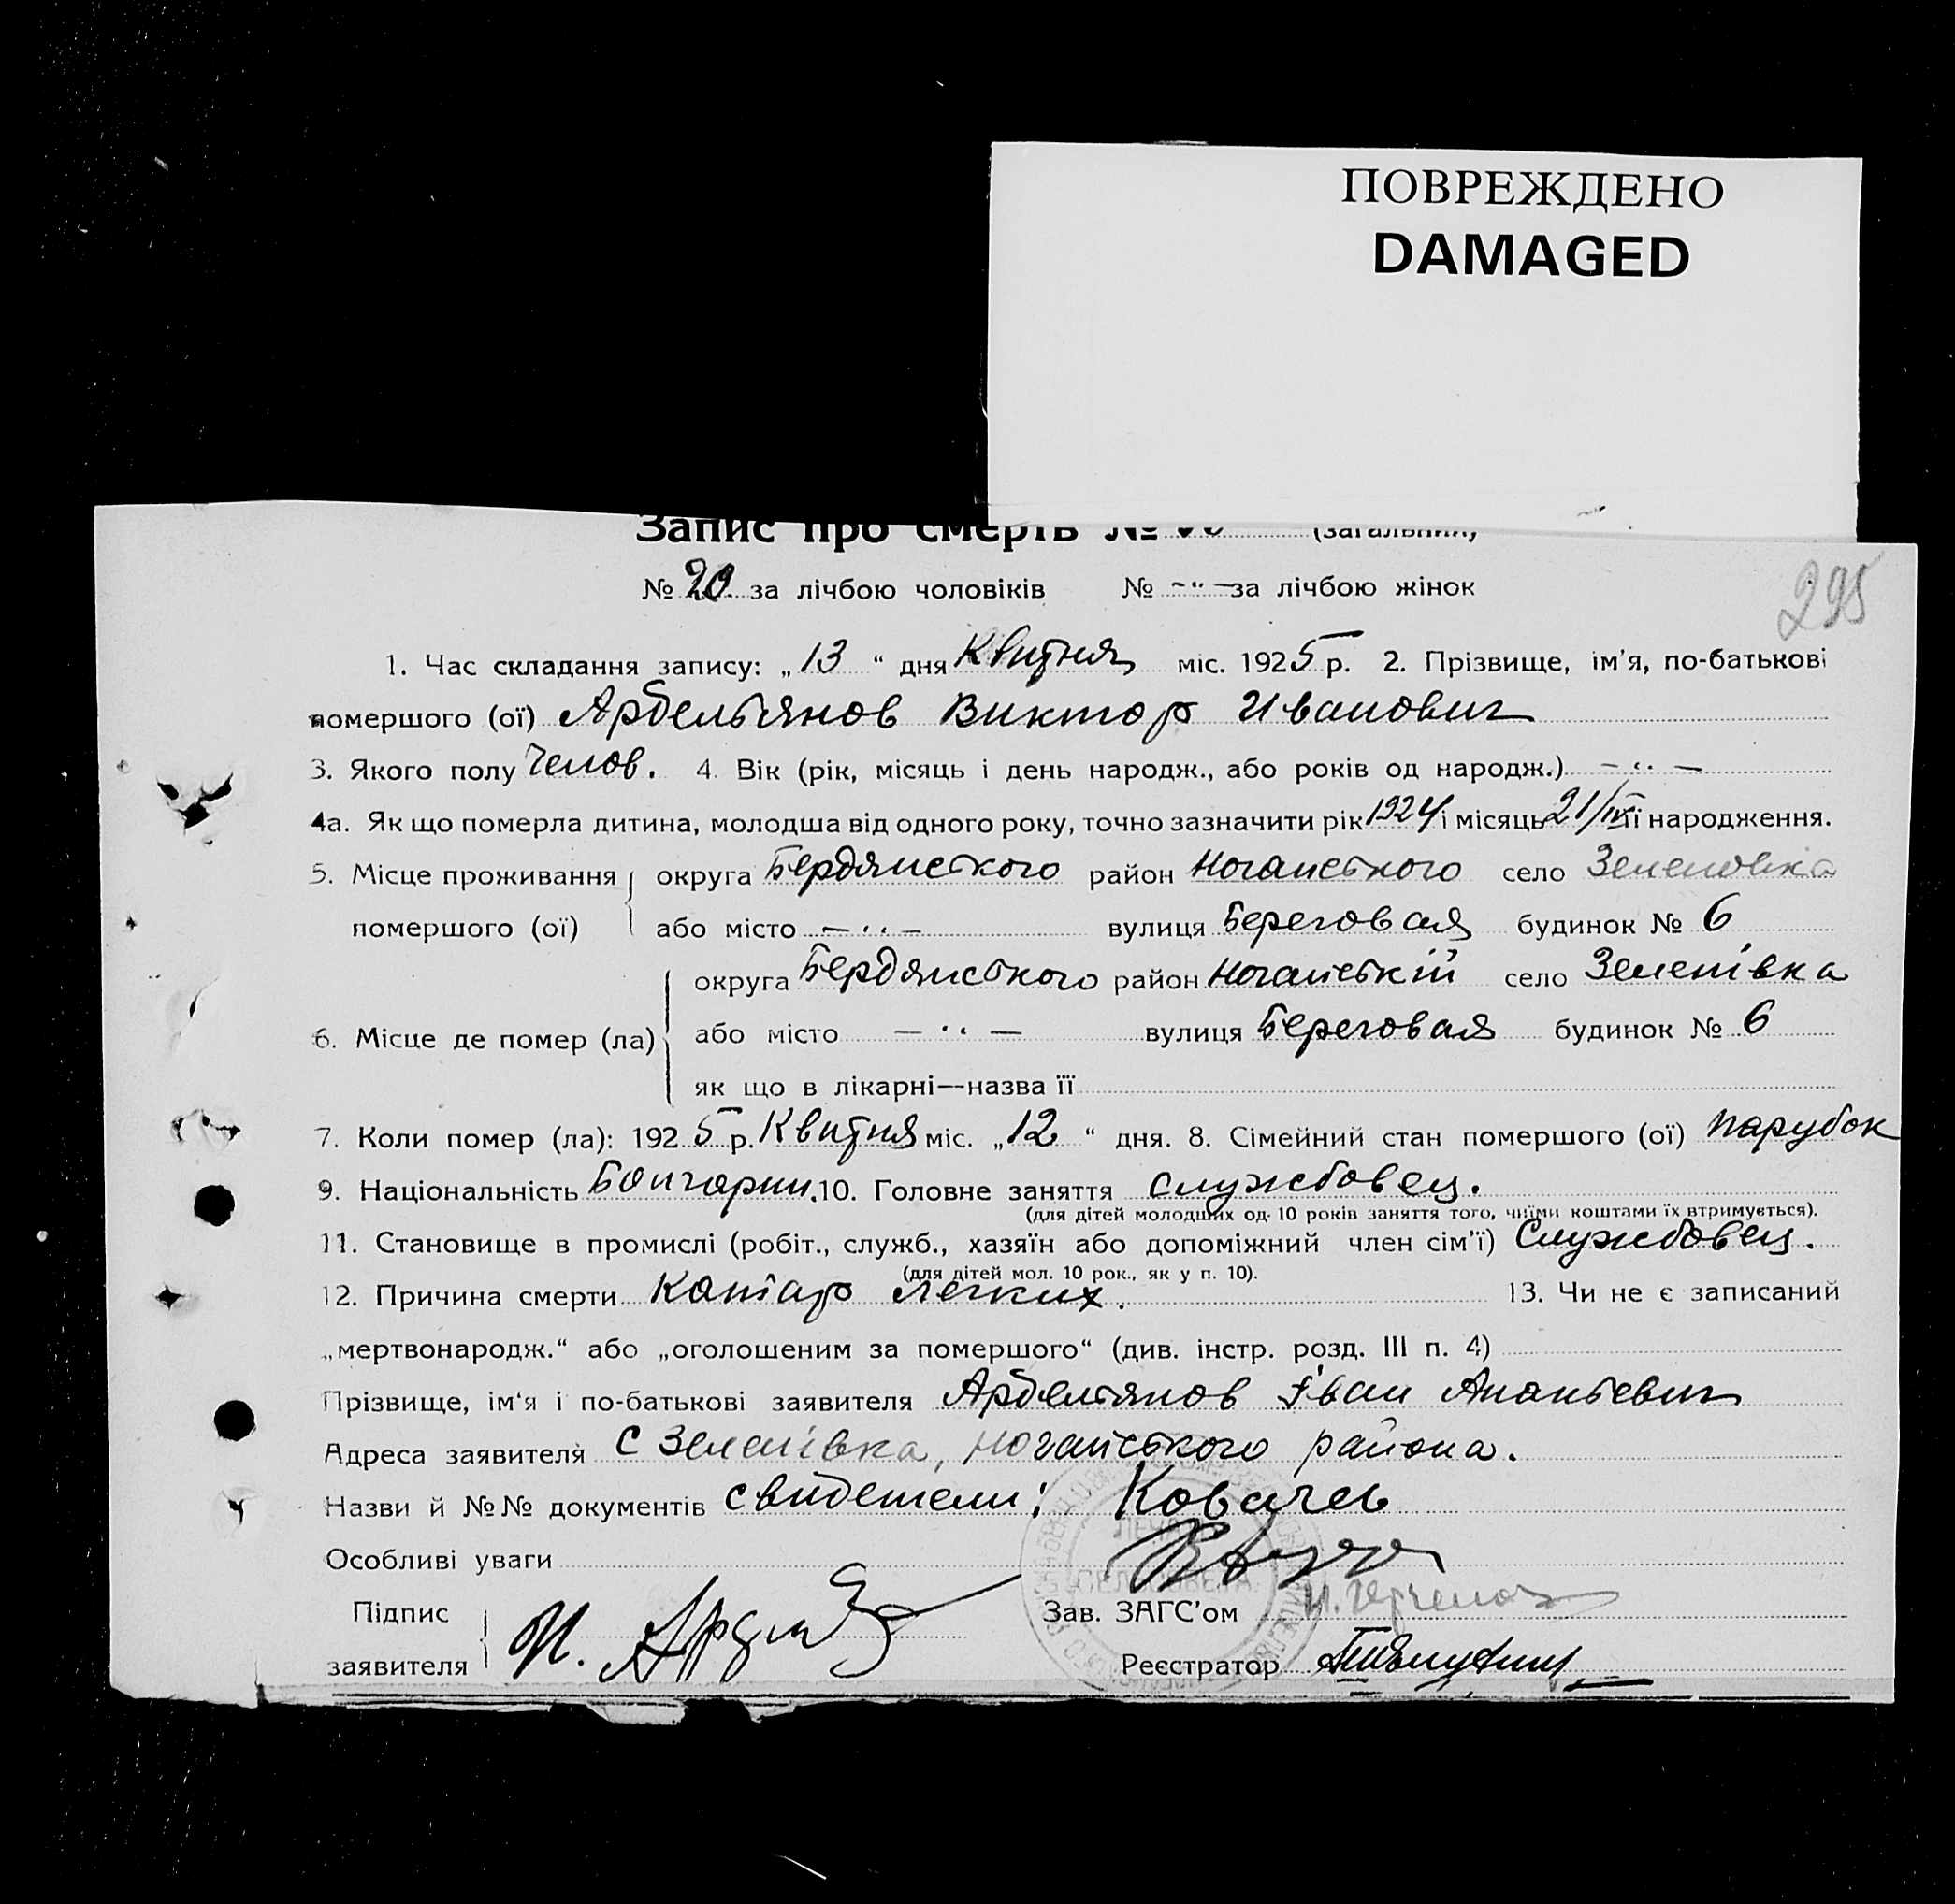 ПОВРЕЖДЕНО
DAMAGED
Запис про смерть № (загальний)
295
№ 20 за лічбою чоловіків № -"- за лічбою жінок
1. Час складання запису: „13“ дня Квитня міс. 1925 р. 2. Прізвище, ім’я, по-батькові
помершого (ої) Арбельянов Виктор Иванович
3. Якого полу Челов. 4. Вік (рік, місяць і день народж., або років од народж.) -"-
4а. Як що померла дитина, молодша від одного року, точно зазначити рік 1924 і місяць 21/ її народження.
5. Місце проживання округа Бердянського район Ногайського село Зеленовка
помершого (ої) або місто -"- вулиця Береговая будинок № 6
округа Бердянського район Ногайській село Зеленівка
6. Місце де помер (ла) або місто -"- вулиця Береговая будинок № 6
як що в лікарні—назва її
7. Коли помер (ла): 1925 р. Квитня міс. „12“ дня. 8. Сімейний стан помершого (ої) парубок
9. Національність Болгарин. 10. Головне заняття службовец.
(для дітей молодших од 10 років заняття того, чиїми коштами їх втримується).
11. Становище в промислі (робіт., служб., хазяїн або допоміжний член сім’ї) Службовец.
(для дітей мол. 10 рок., як у п. 10).
12. Причина смерти Катар легких. 13. Чи не є записаний
„мертвонародж.“ або „оголошеним за помершого“ (див. інстр. розд. III п. 4)
Прізвище, ім‘я і по-батькові заявителя Арбельянов Іван Ананьевич
Адреса заявителя С Зеленівка, Ногайського района.
Назви й №№ документів свидетели: Ковачев
Особливі уваги
Підпис
Зав. ЗАГС’ом
заявителя И.
Реєстратор